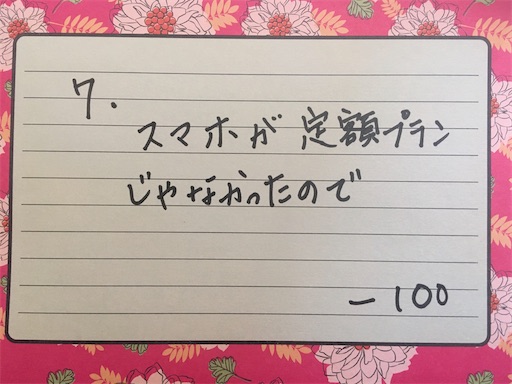 7.
スマホが定額プラン
じゃなかったので
-100